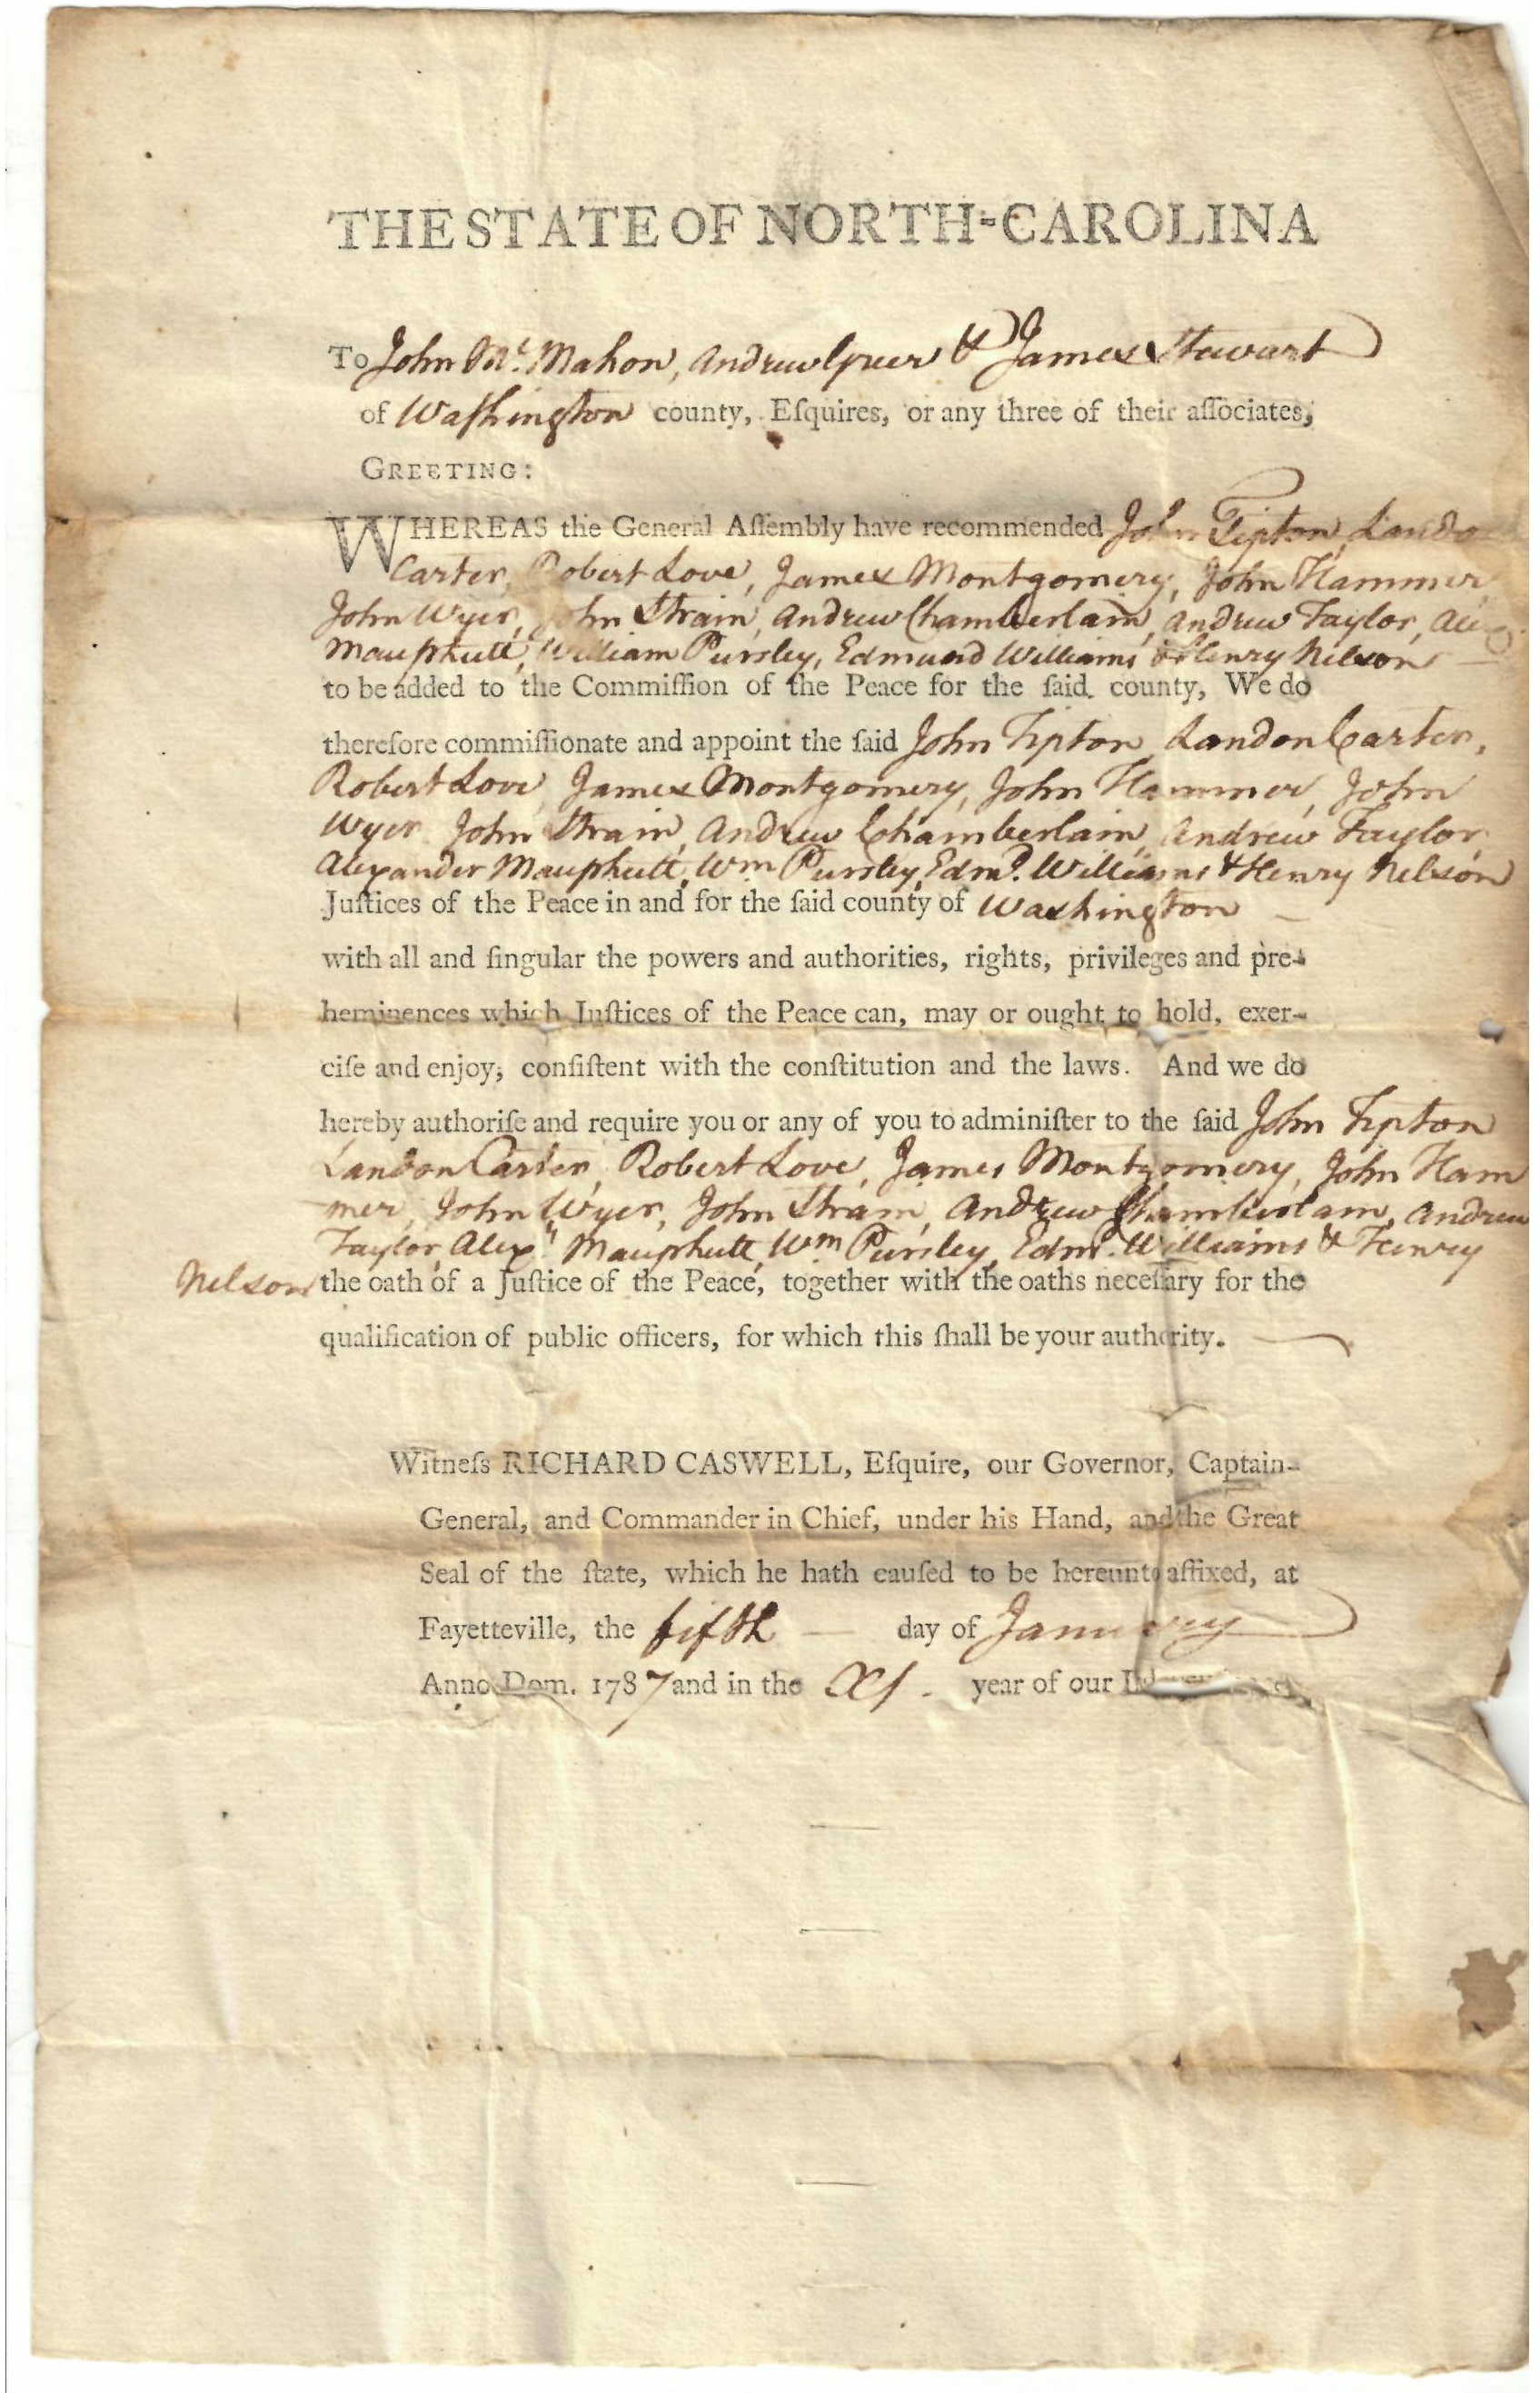 THE STATE OF NORTH-CAROLINA
To John Mc. Mahon, Andrew Greer & James Stewart
of Waſhington county, Eſquires, or any three of their aſſociates,
GREETING:
WHEREAS the General Aſſembly have recommended John Tipton, Lando
Carter, Robert Love, James Montgomery, John Hammer,
John Wyer, John Strain, Andrew Chamberlain, Andrew Taylor,
Mauphutt, William Pursley, Edmund Williams & Henry Nelson
to be added to the Commiſſion of the Peace for the ſaid county, We do
therefore commiſſionate and appoint the ſaid John Tipton, Landon Carter,
Robert Love, James Montgomery, John Hammer, John
Wyer, John Strain, Andrew Chamberlain, Andrew Taylor,
Alexander Mauphutt, Wm Pursley, Edmd. Williams & Henry Nelson
Juſtices of the Peace in and for the ſaid county of Washington
with all and ſingular the powers and authorities, rights, privileges and pre-
heminences which Juſtices of the Peace can, may or ought to hold, exer-
ciſe and enjoy, conſiſtent with the conſtitution and the laws. And we do
hereby authoriſe and require you or any of you to adminiſter to the ſaid John Tipton
Landon Carter, Robert Love, James Montgomery, John Ham
mer, John Wyer, John Strain, Andrew Chamberlain, Andrew
Taylor, Alexr. Mauphutt, Wm Pursley, Edmd. Williams & Henry
Nelson the oath of a Juſtice of the Peace, together with the oaths neceſſary for the
qualification of public officers, for which this ſhall be your authority.
Witneſs RICHARD CASWELL, Eſquire, our Governor, Captain-
General, and Commander in Chief, under his Hand, and the Great
Seal of the ſtate, which he hath cauſed to be hereunto affixed, at
Fayetteville, the fifth day of January
Anno Dom. 1787 and in the XI. year of our